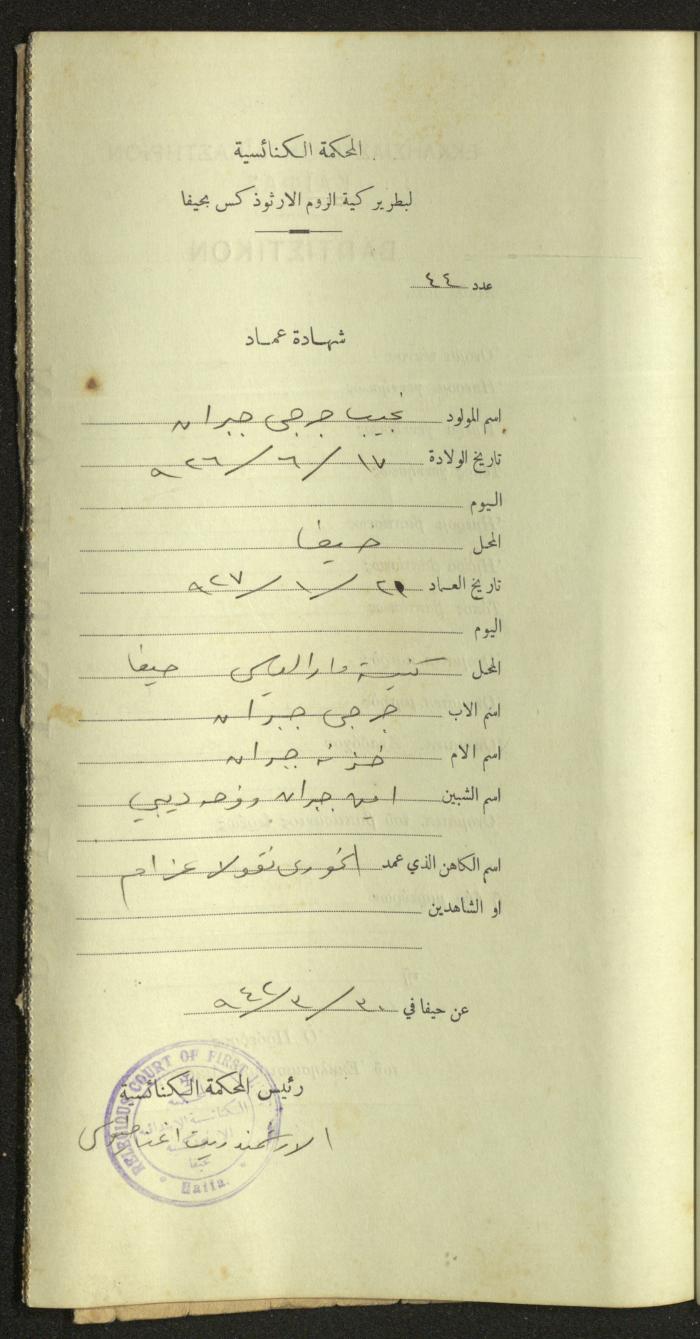 المحكمة الكنائسية
لبطريركية الروم الارثوذكس بحيفا
عدد ٤٤
شهادة عماد
اسم المولود نجيب جرجي جبران
تاريخ الولادة ١٧/٦/٩٢٦
اليوم
المحل حيفا
تاريخ العماد /١/٩٢٧
اليوم
المحل كنيسة مار الياس حيفا
اسم الاب جرجي جبران
اسم الام خزنه جبران
اسم الشبين جبران
اسم الكاهن الذي عمد الخوري نقولا عزام
او الشاهدين
عن حيفا في ٣٠/٣/٩٤٢
رئيس المحكمة الكنائسية
الارشمندريت اغناطيوس
RELIGIOUS COURT OF FIRST
Haifa.